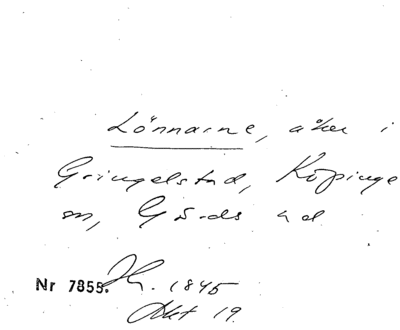 Lönnarne, åker i
Gringelstad, Köpinge
sn, Gärds hd
Nr 7855. Jh. 1845
Akt 19